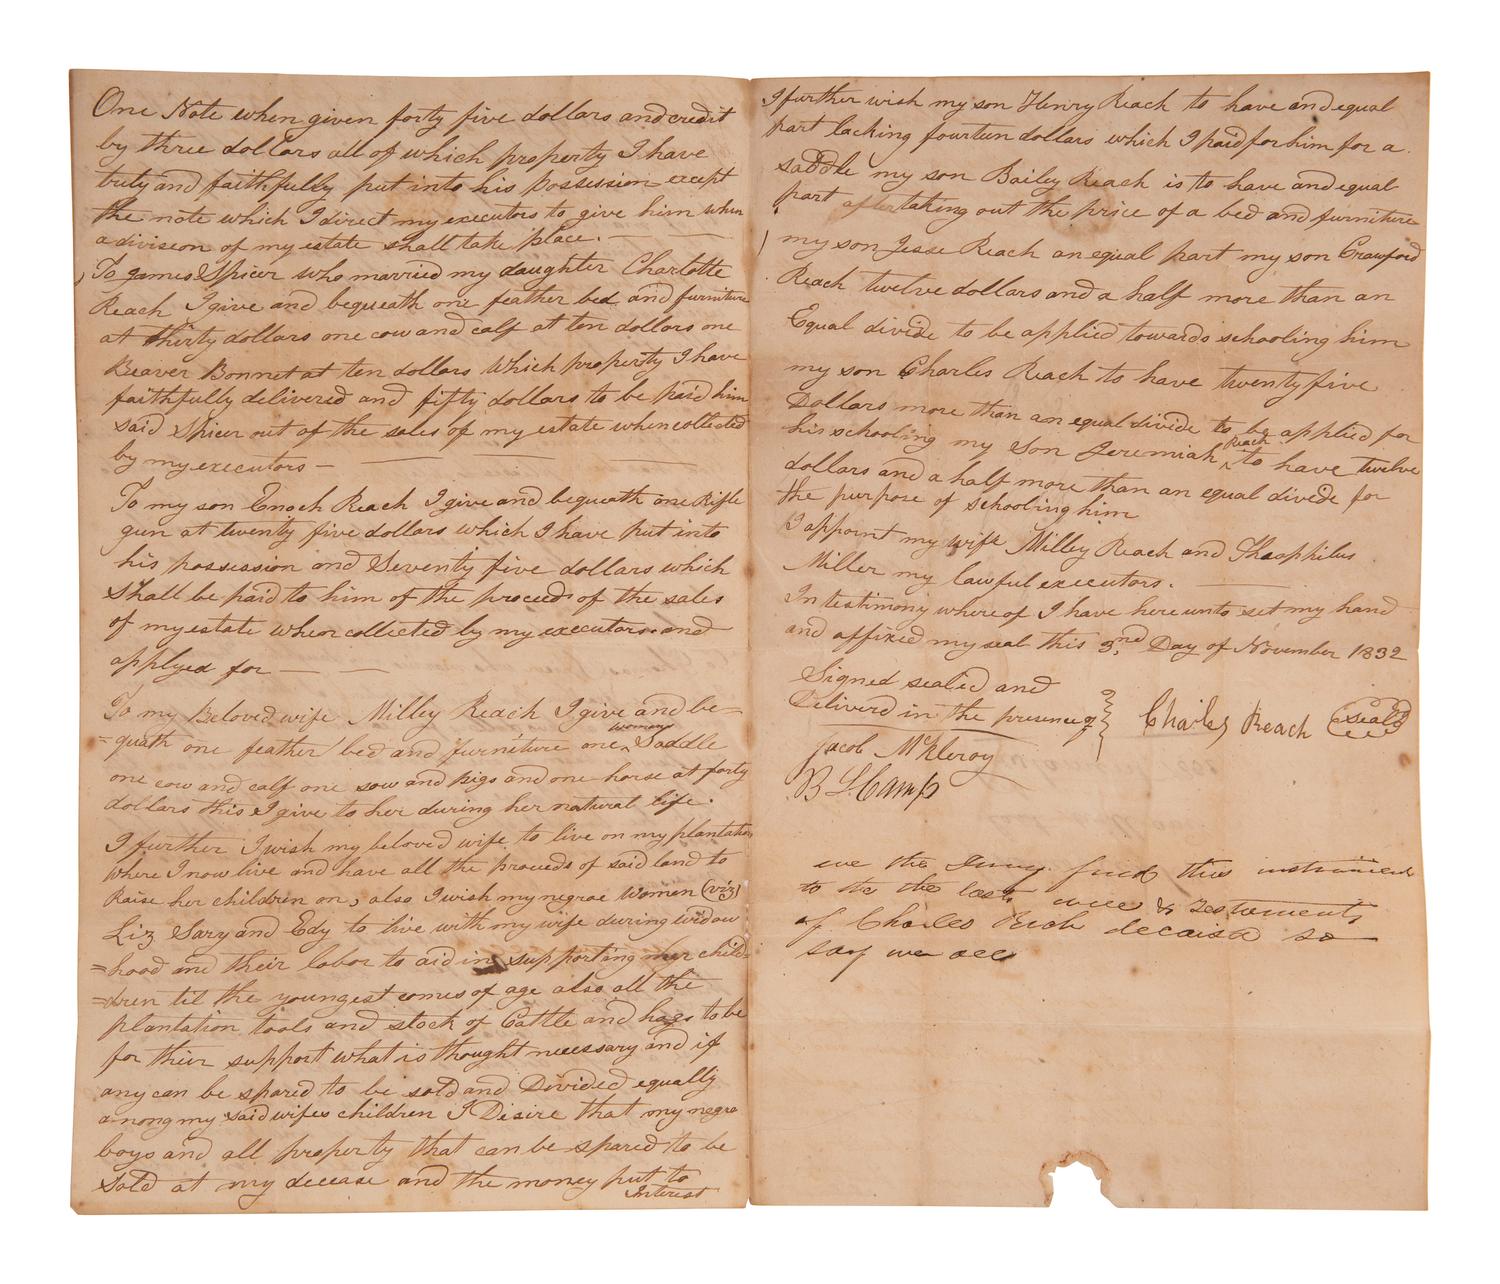 One Note when given forty five dollars and credit
by three dollars all of which property I have
truly and faithfully put into his possession except
the note which I direct my executors to give him when
a division of my estate shall take place.
To James Spicer who married my daughter Charlotte
Reach I give and bequeath one feather bed and furniture
at thirty dollars one cow and calf at ten dollars one
Beaver Bonnet at ten dollars Which property I have
faithfully delivered and fifty dollars to be paid him
said Spicer out of the sales of my estate when collected
by my executors —
To my son Enoch Reach I give and bequeath one Rifle
gun at twenty five dollars which I have put into
his possession and Seventy five dollars which
Shall be paid to him of the proceeds of the sales
of my estate when collected by my executors and
applyed for — —
To my Beloved wife Milley Reach I give and be=
=quath one feather bed and furniture one womans Saddle
one cow and calf one sow and pigs and one horse at forty
dollars this I give to her during her natural life.
I further I wish my beloved wife to live on my plantation
where I now live and have all the proceeds of said land to
Raise her children on, also I wish my negroe Women (viz)
Liz Sary and Edy to live with my wife during widow
=hood and their labor to aid in supporting her child=
=dren til the youngest comes of age also all the
plantation tools and stock of Cattle and hogs to be
for their support what is thought necessary and if
any can be spared to be sold and Divided equally
among my said wifes children I Desire that my negro
boys and all property that can be spared to be
Sold at my decease and the money put to
Interest
I further wish my son Henry Reach to have and equal
part lacking fourteen dollars which I paid for him for a
saddle my son Bailey Reach is to have and equal
part after taking out the price of a bed and furniture
my son Jesse Reach an equal part my son Crawford
Reach twelve dollars and a half more than an
Equal divide to be applied towards schooling him
my son Charles Reach to have twenty five
Dollars more than an equal divide to be applied for
his schooling my Son Jeremiah Reach to have twelve
dollars and a half more than an equal divide for
the purpose of schooling him
I appoint my wife Milley Reach and Theophilus
Miller my lawful executors.
In testimony where of I have here unto set my hand
and affixed my seal this 3nd Day of November 1832
Signed sealed and
Deliverd in the presence of
Charles Reach (seal)
Jacob McElroy
B L Camp
we the Jury find this instrument
to be the last will & Testaments
of Charles Reach decaised so
say we all